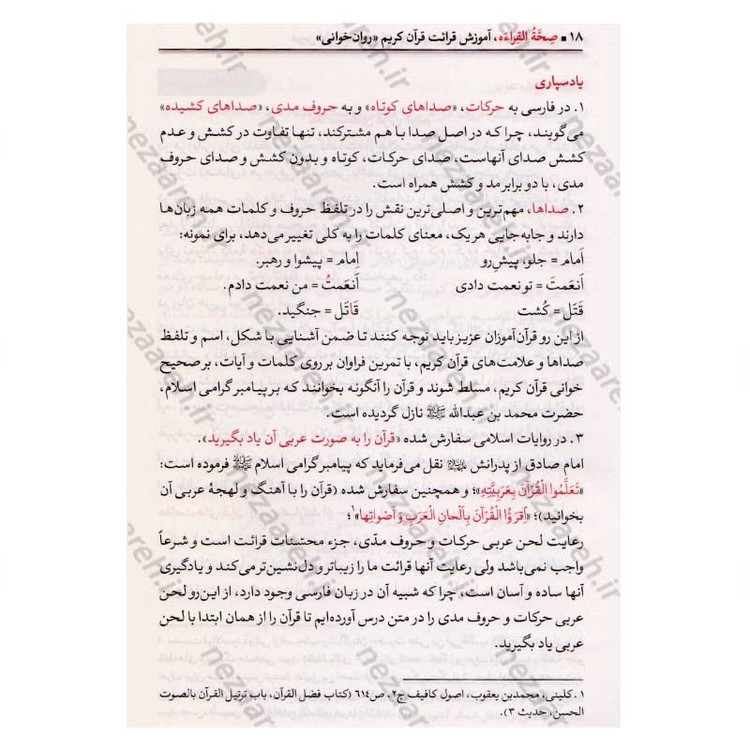 ۱۸ ■ صِحَّةُ القِراءَه، آموزش قرائت قرآن کریم «روان‌خوانی»
یادسپاری
۱. در فارسی به حرکات، «صداهای کوتاه» و به حروف مدی، «صداهای کشیده»
می‌گویند، چرا که در اصل صدا با هم مشترکند، تنها تفاوت در کشش و عدم
کشش صدای آنهاست، صدای حرکات، کوتاه و بدون کشش و صدای حروف
مدی، با دو برابر مد و کشش همراه است.
۲. صداها، مهم‌ترین و اصلی‌ترین نقش را در تلفظ حروف و کلمات همه زبان‌ها
دارند و جابه‌جایی هریک، معنای کلمات را به کلی تغییر می‌دهد، برای نمونه:
اَمام = جلو، پیشِ‌رو اِمام = پیشوا و رهبر.
اَنعَمتَ = تو نعمت دادی اَنعَمتُ = من نعمت دادم.
قَتَل = کُشت قاتَل = جنگید.
از این رو قرآن‌آموزان عزیز باید توجه کنند تا ضمن آشنایی با شکل، اسم و تلفظ
صداها و علامت‌های قرآن کریم، با تمرین فراوان بر روی کلمات و آیات، بر صحیح
خوانی قرآن کریم، مسلط شوند و قرآن را آنگونه بخوانند که بر پیامبر گرامی اسلام،
حضرت محمد بن عبدالله ﷺ نازل گردیده است.
۳. در روایات اسلامی سفارش شده «قرآن را به صورت عربی آن یاد بگیرید».
امام صادق از پدرانش نقل می‌فرماید که پیامبر گرامی اسلام ﷺ فرموده است:
«تَعَلَّمُوا الْقُرْآنَ بِعَرَبِیَّتِهِ»؛ و همچنین سفارش شده (قرآن را با آهنگ و لهجهٔ عربی آن
بخوانید)؛ «اَقرَؤُا الْقُرْآنَ بِاَلْحانِ الْعَرَبِ وَ اَصْواتِها»۱؛
رعایت لحن عربی حرکات و حروف مدّی، جزء محتسنات قرائت است و شرعاً
واجب نمی‌باشد ولی رعایت آنها قرائت ما را زیباتر و دل‌نشین‌تر می‌کند و یادگیری
آنها ساده و آسان است، چرا که شبیه آن در زبان فارسی وجود دارد، از این‌رو لحن
عربی حرکات و حروف مدی را در متن درس آورده‌ایم تا قرآن را از همان ابتدا با لحن
عربی یاد بگیرید.
۱. کلینی، محمدبن یعقوب، اصول کافیف ج۲، ص۶۱۴ (کتاب فضل القرآن، باب ترتیل القرآن بالصوت
الحسن، حدیث ۳).
nezaareh.ir